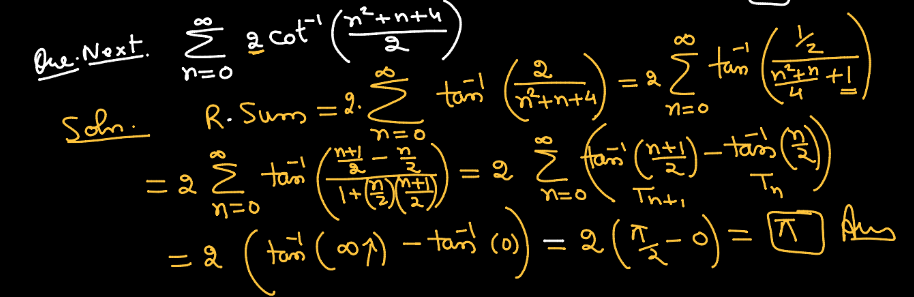 Que. Next. ∞ ∑ n=0 2 cot⁻¹ ( (n²+n+4)/2 )
Soln. R. Sum = 2. ∞ ∑ n=0 tan⁻¹ ( 2/(n²+n+4) ) = 2 ∞ ∑ n=0 tan⁻¹ ( (1/2)/((n²+n)/4 + 1) )
= 2 ∞ ∑ n=0 tan⁻¹ ( ((n+1)/2 − n/2)/(1+(n/2)((n+1)/2)) ) = 2 ∞ ∑ n=0 ( tan⁻¹((n+1)/2) − tan⁻¹(n/2) )
Tn+1 Tn
= 2 ( tan⁻¹(∞↑) − tan⁻¹(0) ) = 2 ( π/2 − 0 ) = π Ans